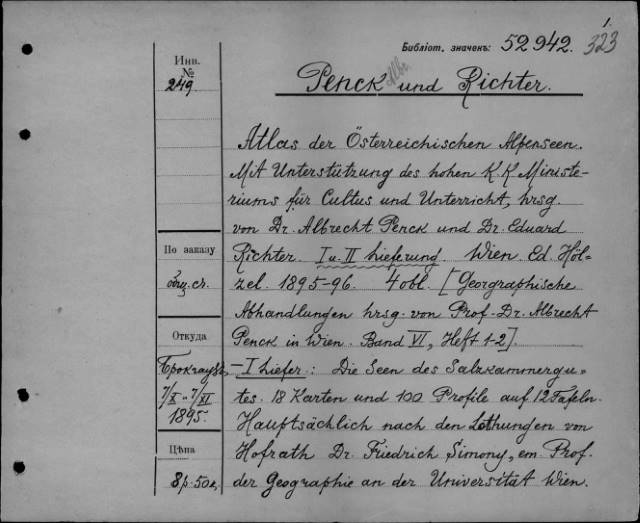 1.
Библіот. значенъ: 52942. 323
Инв.
№
249.
Penck und Richter.
Atlas der Österreichischen Alpenseen.
Mit Unterstützung des hohen K. K Ministe-
riums für Cultus und Unterricht, hrsg.
von Dr. Albrecht Penck und Dr. Eduard
Richter. I u. II Lieferung. Wien. Ed. Höl-
zel. 1895-96. 4 obl. [Georgraphische
Abhandlungen hrsg. von Prof. Dr. Albrecht
Penck in Wien. Band VI, Heft 1-2].
— I Liefer: Die Seen des Salzkammergu-
tes. 18 Karten und 100 Profile auf 12 Tafeln.
Hauptsächlich nach den Lothungen von
Hofrath Dr. Friedrich Simony, em. Prof.
der Geographie an der Universität Wien.
По заказу
общ. ст.
Откуда
7/X 7/XI
1895.
Цѣна
8 р. 50 к.